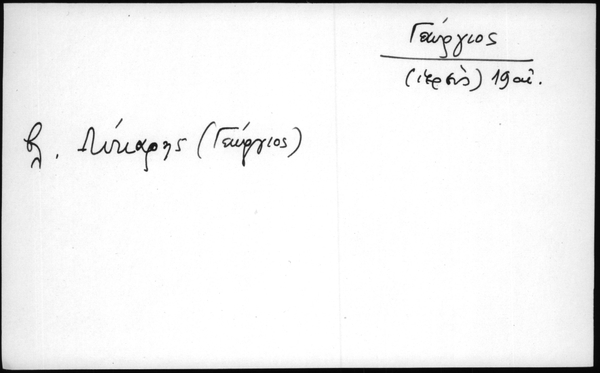 Γεώργιος
(ιερεὺς) 19 αἰ.
βλ. Λύκαρης (Γεώργιος)